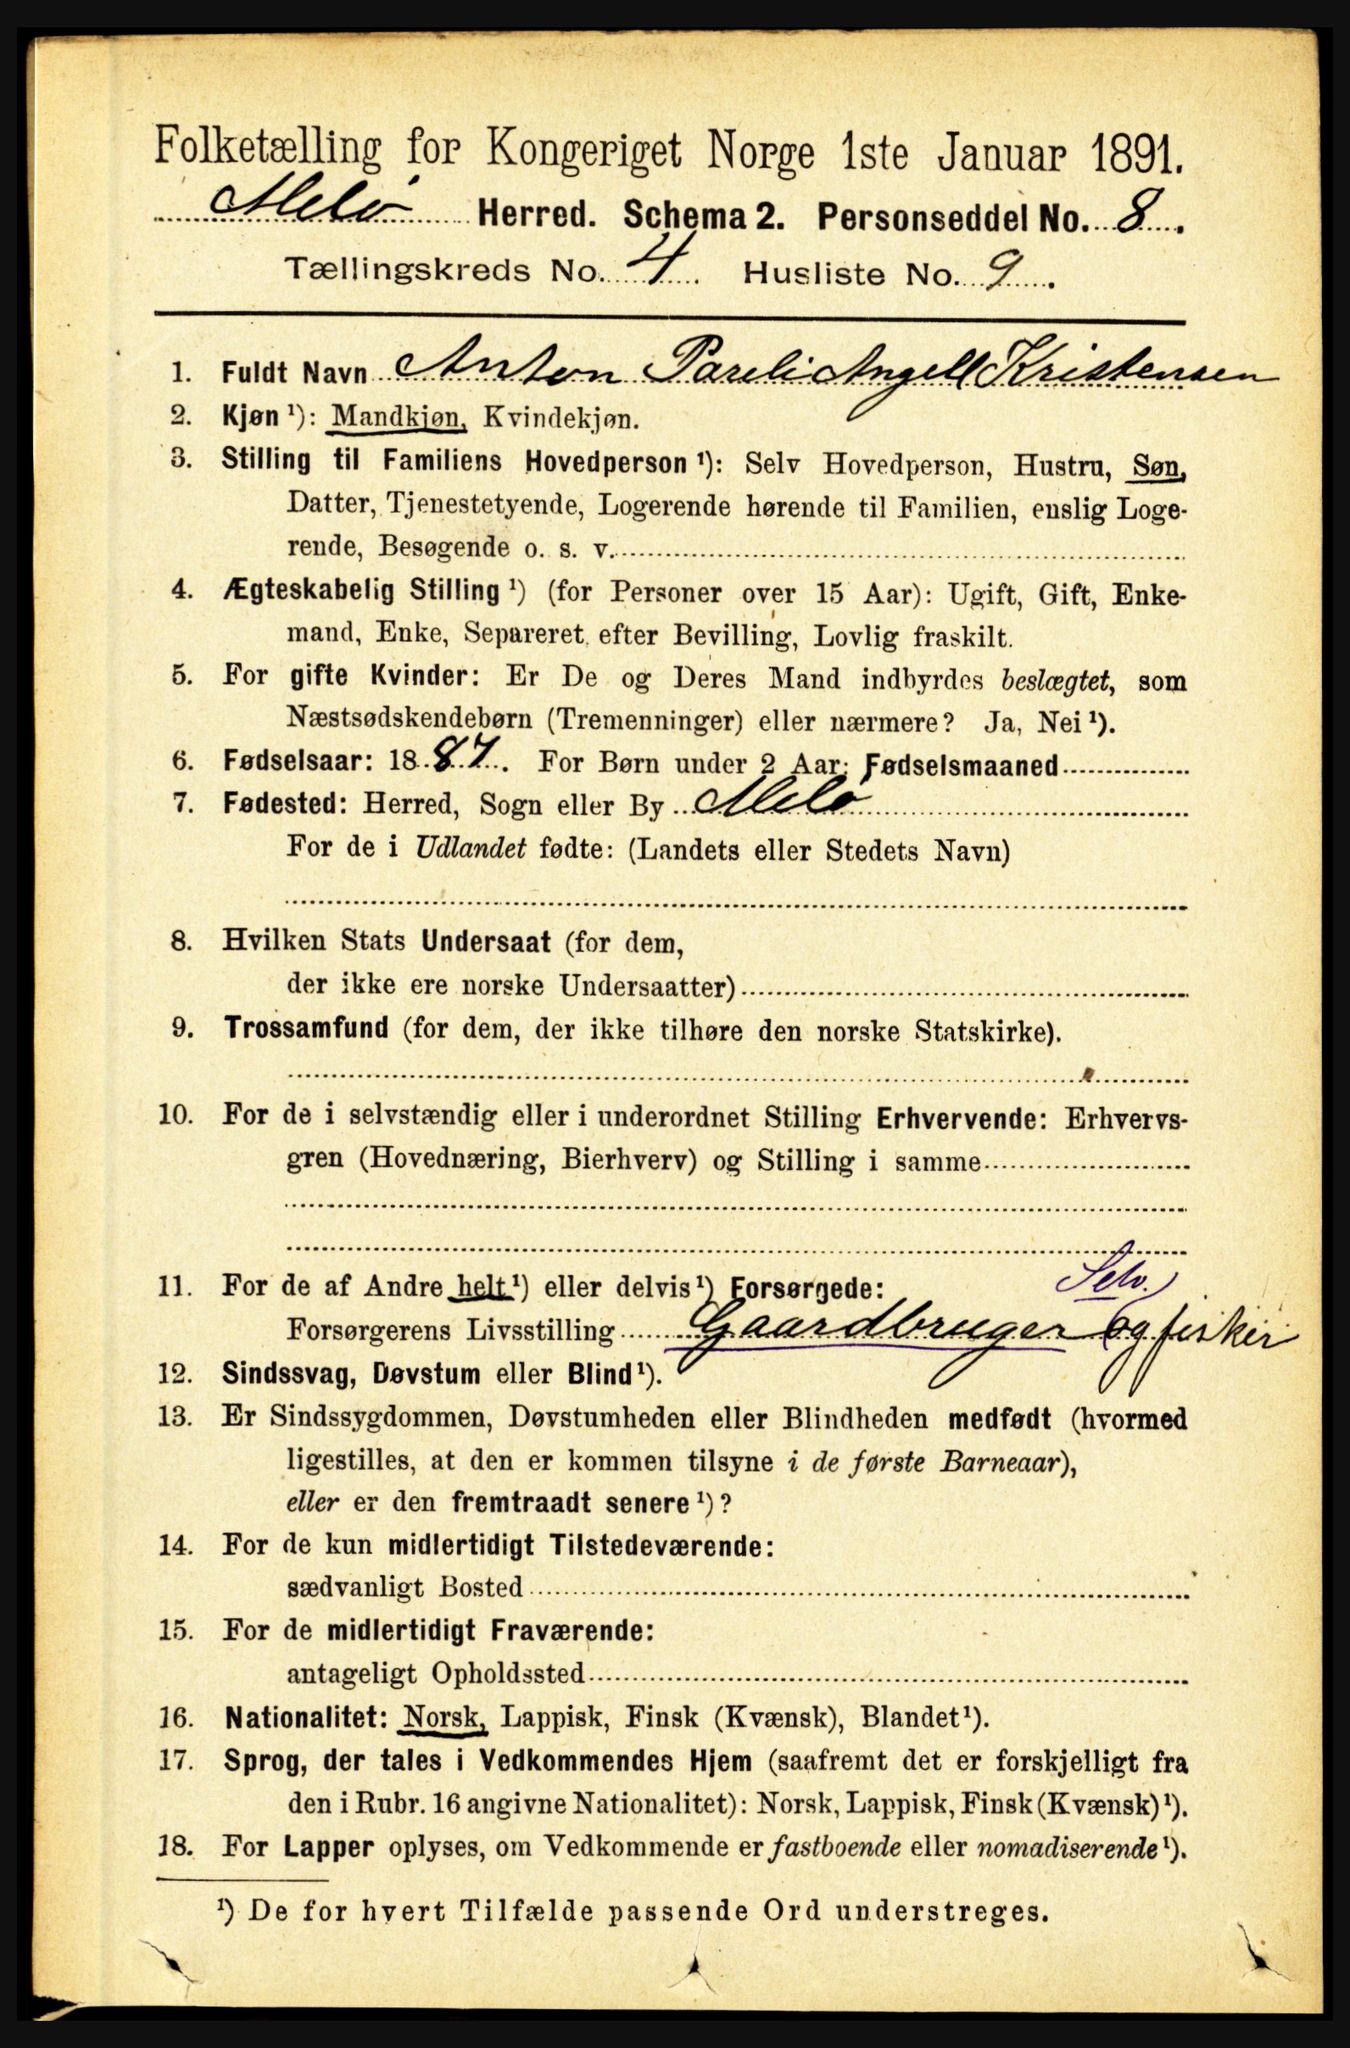 Folketælling for Kongeriget Norge 1ste Januar 1891.
Melø Herred. Schema 2. Personseddel No. 8.
Tællingskreds No. 4 Husliste No. 9.
1. Fuldt Navn Anton Pareli Angell Kristensen
2. Kjøn ¹): Mandkjøn, Kvindekjøn.
3. Stilling til Familiens Hovedperson ¹): Selv Hovedperson, Hustru, Søn,
Datter, Tjenestetyende, Logerende hørende til Familien, enslig Loge-
rende, Besøgende o. s. v.
4. Ægteskabelig Stilling ¹) (for Personer over 15 Aar): Ugift, Gift, Enke-
mand, Enke, Separeret efter Bevilling, Lovlig fraskilt.
5. For gifte Kvinder: Er De og Deres Mand indbyrdes beslægtet, som
Næstsødskendebørn (Tremenninger) eller nærmere? Ja, Nei ¹).
6. Fødselsaar: 1887. For Børn under 2 Aar: Fødselsmaaned
7. Fødested: Herred, Sogn eller By Melø
For de i Udlandet fødte: (Landets eller Stedets Navn)
8. Hvilken Stats Undersaat (for dem,
der ikke ere norske Undersaatter)
9. Trossamfund (for dem, der ikke tilhøre den norske Statskirke).
10. For de i selvstændig eller i underordnet Stilling Erhvervende: Erhvervs-
gren (Hovednæring, Bierhverv) og Stilling i samme
11. For de af Andre helt ¹) eller delvis ¹) Forsørgede: Selv.
Forsørgerens Livsstilling Gaardbruger og fisker
12. Sindssvag, Døvstum eller Blind ¹).
13. Er Sindssygdommen, Døvstumheden eller Blindheden medfødt (hvormed
ligestilles, at den er kommen tilsyne i de første Barneaar),
eller er den fremtraadt senere ¹)?
14. For de kun midlertidigt Tilstedeværende:
sædvanligt Bosted
15. For de midlertidigt Fraværende:
antageligt Opholdssted
16. Nationalitet: Norsk, Lappisk, Finsk (Kvænsk), Blandet ¹).
17. Sprog, der tales i Vedkommendes Hjem (saafremt det er forskjelligt fra
den i Rubr. 16 angivne Nationalitet): Norsk, Lappisk, Finsk (Kvænsk) ¹).
18. For Lapper oplyses, om Vedkommende er fastboende eller nomadiserende ¹).
¹) De for hvert Tilfælde passende Ord understreges.